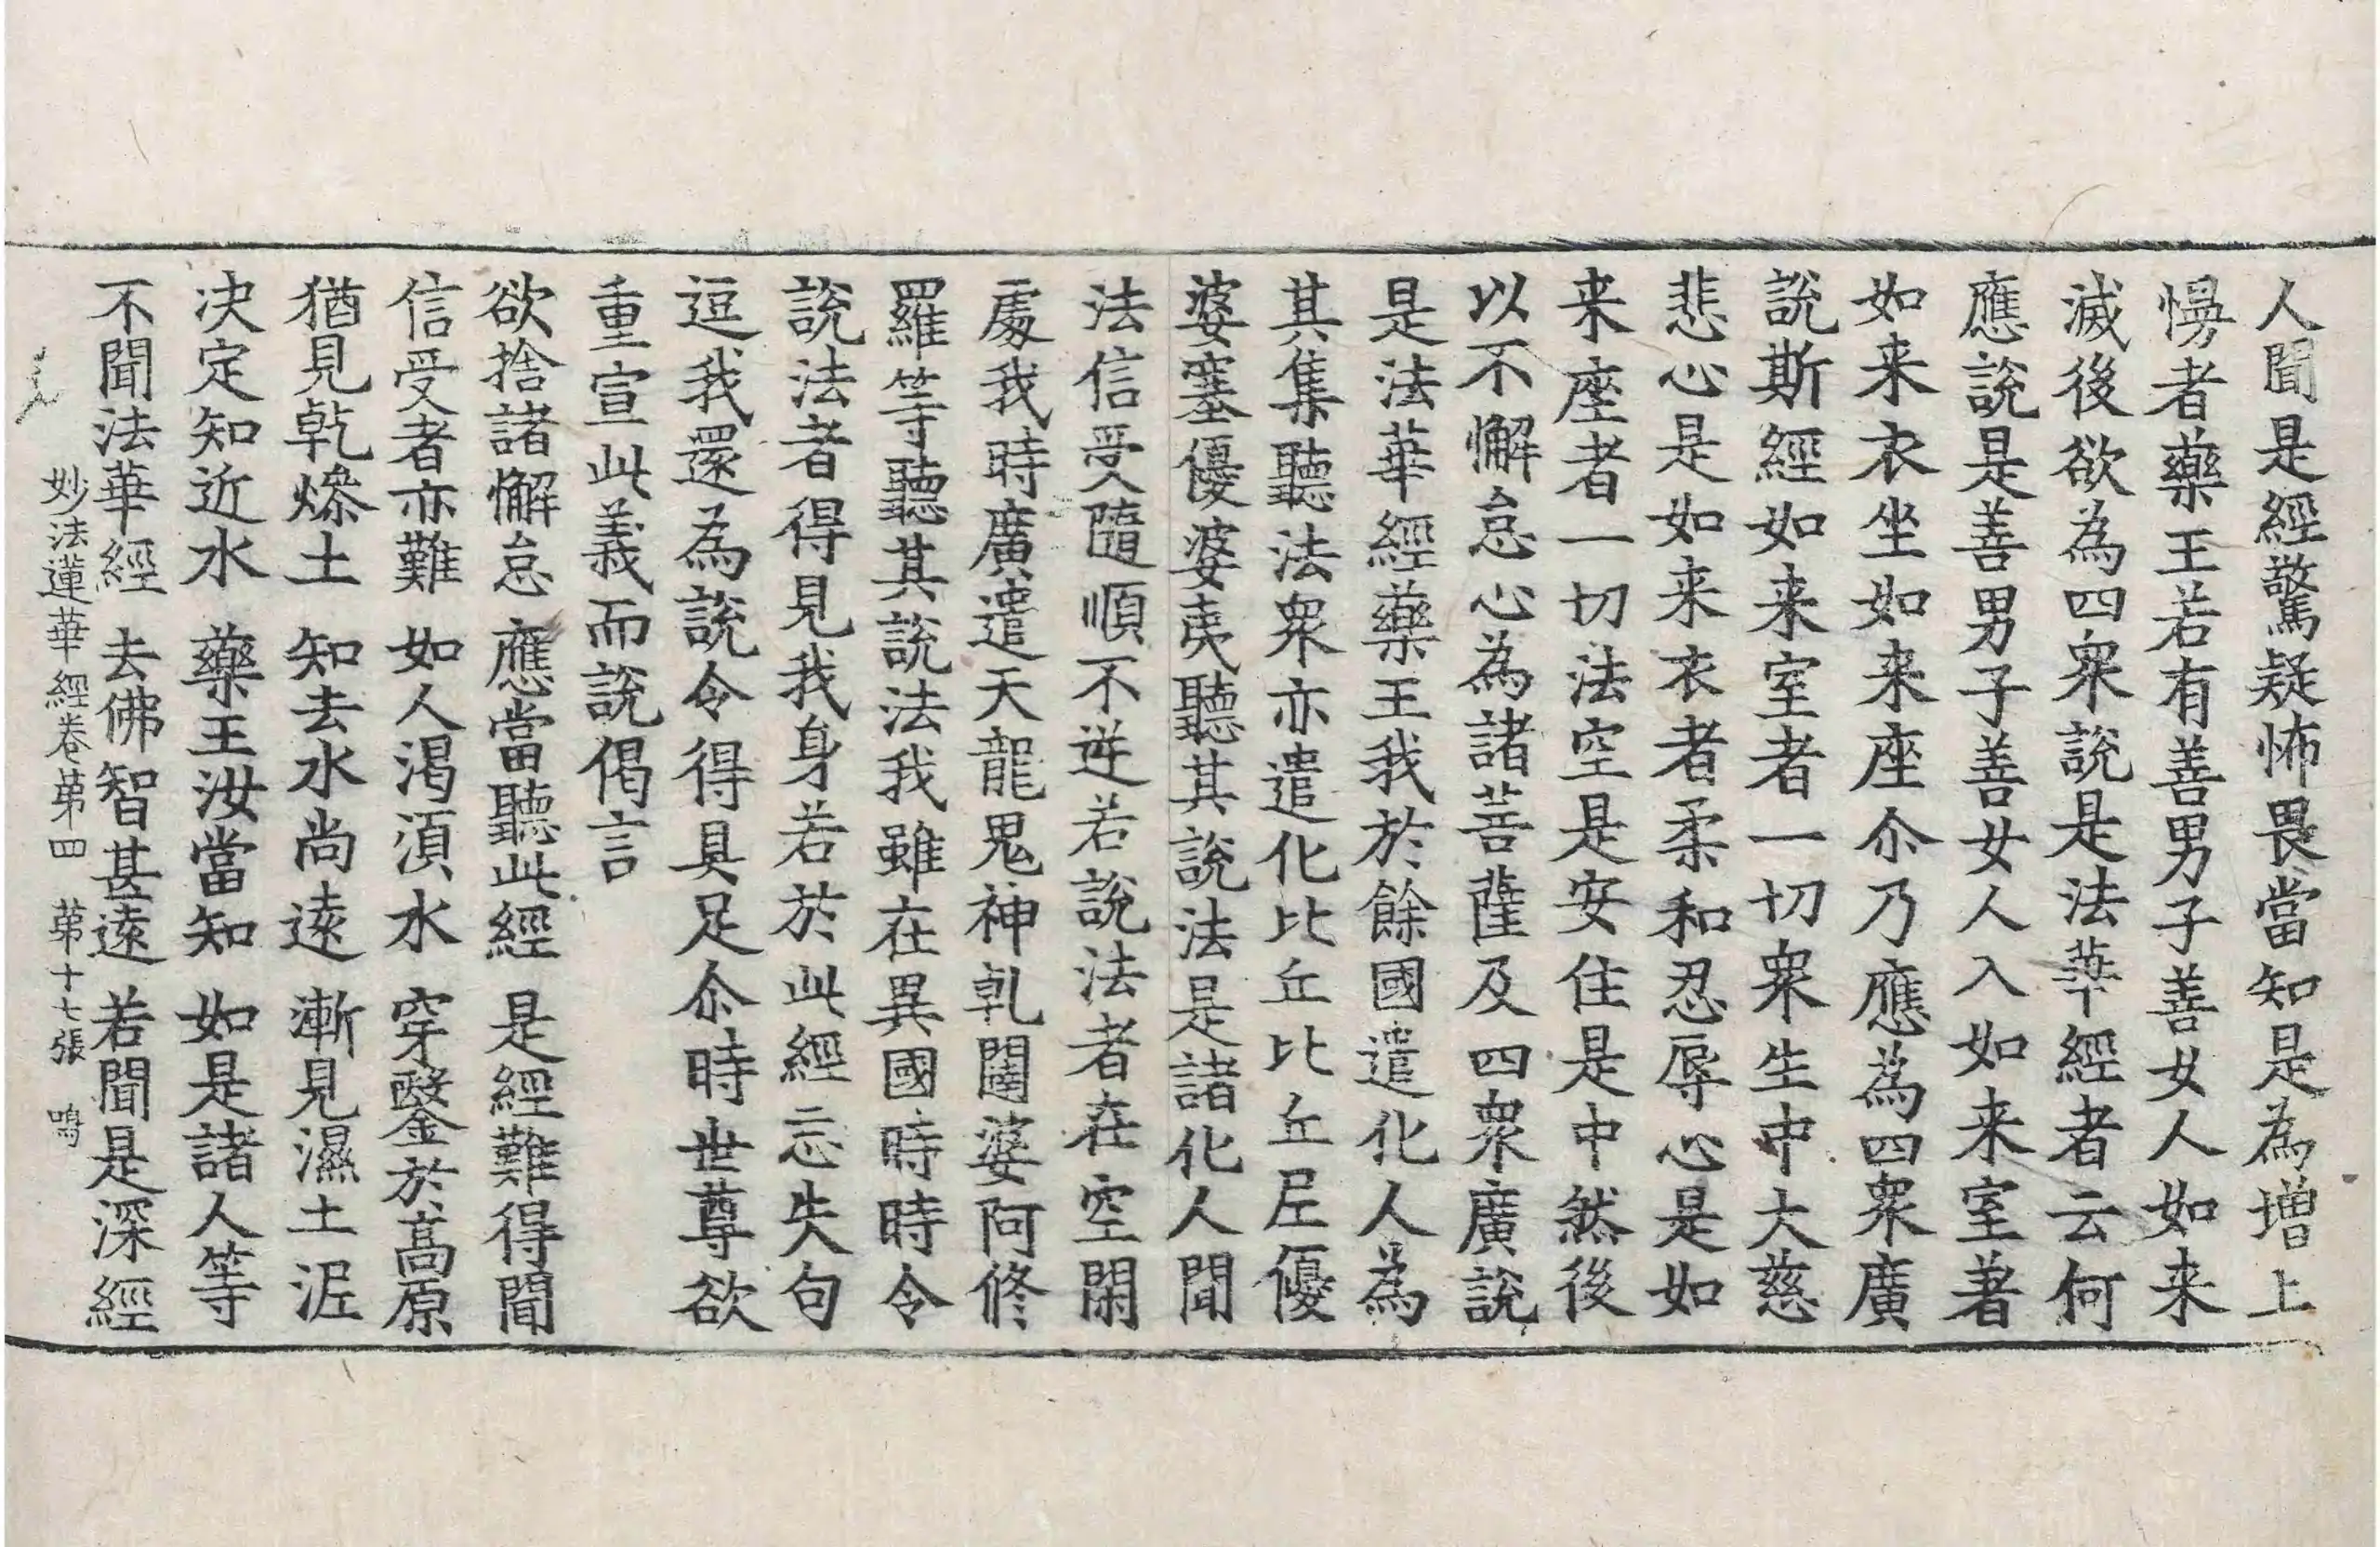 人聞是經驚疑怖畏當知是為增上
慢者藥王若有善男子善女人如来
滅後欲為四衆說是法華經者云何
應說是善男子善女人入如来室著
如来衣坐如来座尒乃應為四衆廣
說斯經如来室者一切衆生中大慈
悲心是如来衣者柔和忍辱心是如
来座者一切法空是安住是中然後
以不懈怠心為諸菩薩及四衆廣說
是法華經藥王我於餘國遣化人為
其集聽法衆亦遣化比丘比丘尼優
婆塞優婆夷聽其說法是諸化人聞
法信受隨順不逆若說法者在空閑
處我時廣遣天龍鬼神乹闥婆阿修
羅等聽其說法我雖在異國時時令
說法者得見我身若於此經忘失句
逗我還為說令得具足尒時世尊欲
重宣此義而說偈言
欲捨諸懈怠　應當聽此經　是經難得聞
信受者亦難　如人渴湏水　穿鑿於高原
猶見乾燥土　知去水尚遠　漸見濕土泥
决定知近水　藥王汝當知　如是諸人等
不聞法華經　去佛智甚遠　若聞是深經
妙法蓮華經卷苐四　苐十七張　鳴